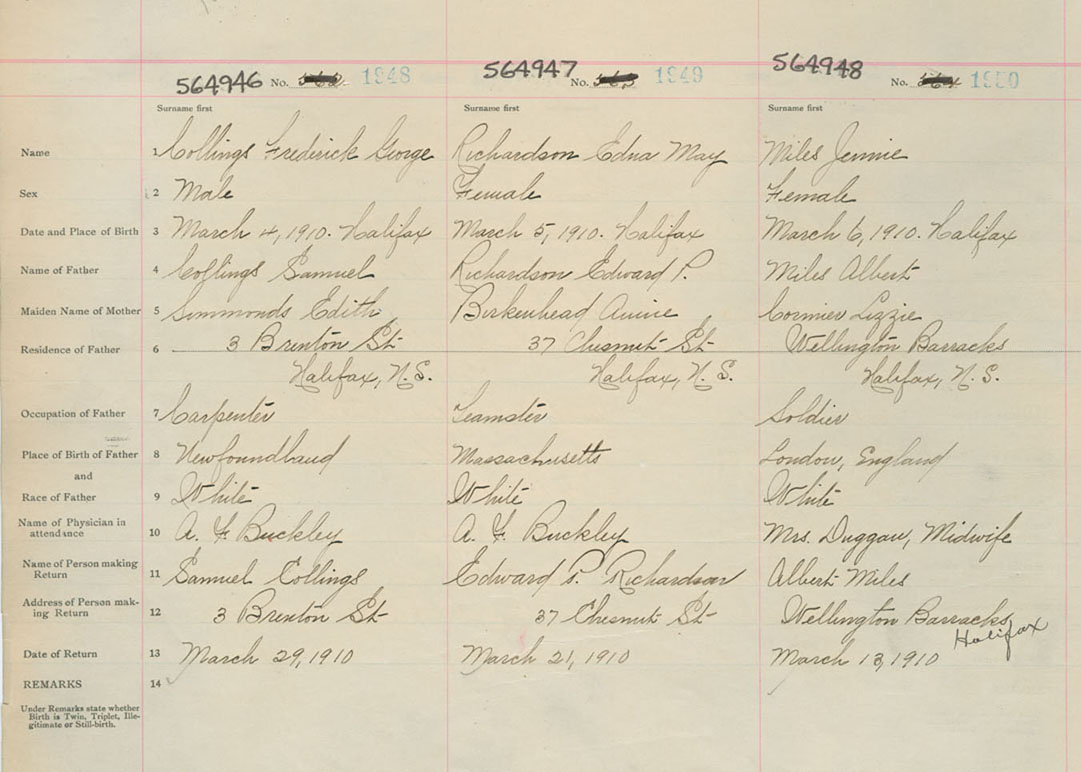 564946 No. 1948 564947 No. 1949 564948 No. 1950
Surname first Surname first Surname first
Name 1 Collings Frederick George Richardson Edna May Miles Jennie
Sex 2 Male Female Female
Date and Place of Birth 3 March 4, 1910. Halifax March 5, 1910. Halifax March 6, 1910. Halifax
Name of Father 4 Collings Samuel Richardson Edward P. Miles Albert
Maiden Name of Mother 5 Simmonds Edith Birkenhead Annie Cormier Lizzie
Residence of Father 6 3 Brenton St 37 Chesnut St Wellington Barracks
Halifax, N.S. Halifax, N.S. Halifax, N.S.
Occupation of Father 7 Carpenter Teamster Soldier
Place of Birth of Father 8 Newfoundland Massachusetts London, England
and
Race of Father 9 White White White
Name of Physician in
attendance 10 A. F. Buckley A. F. Buckley Mrs. Duggan, Midwife
Name of Person making
Return 11 Samuel Collings Edward P. Richardson Albert Miles
Address of Person mak-
ing Return 12 3 Brenton St 37 Chesnut St Wellington Barracks,
Halifax
Date of Return 13 March 29, 1910 March 21, 1910 March 13, 1910
REMARKS 14
Under Remarks state whether
Birth is Twin, Triplet, Ille-
gitimate or Still-birth.